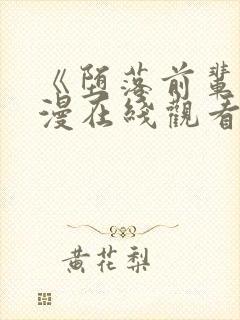 《堕落前辈
漫在线觀看
黄花梨